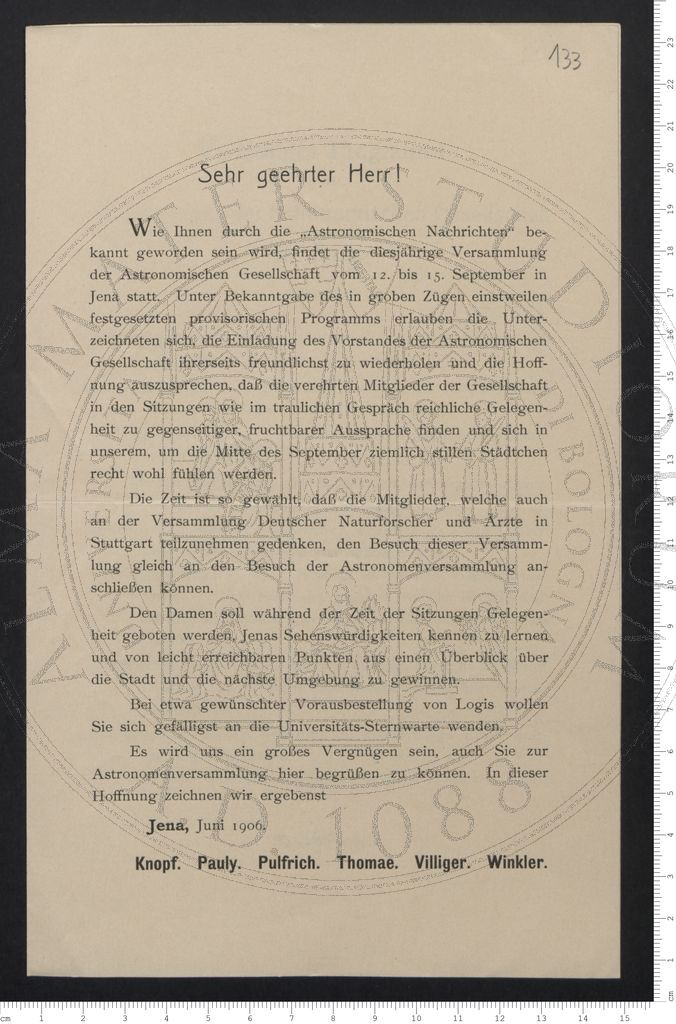 133
Sehr geehrter Herr!
Wie Ihnen durch die „Astronomischen Nachrichten“ be-
kannt geworden sein wird, findet die diesjährige Versammlung
der Astronomischen Gesellschaft vom 12. bis 15. September in
Jena statt. Unter Bekanntgabe des in groben Zügen einstweilen
festgesetzten provisorischen Programms erlauben die Unter-
zeichneten sich, die Einladung des Vorstandes der Astronomischen
Gesellschaft ihrerseits freundlichst zu wiederholen und die Hoff-
nung auszusprechen, daß die verehrten Mitglieder der Gesellschaft
in den Sitzungen wie im traulichen Gespräch reichliche Gelegen-
heit zu gegenseitiger, fruchtbarer Aussprache finden und sich in
unserem, um die Mitte des September ziemlich stillen Städtchen
recht wohl fühlen werden.
Die Zeit ist so gewählt, daß die Mitglieder, welche auch
an der Versammlung Deutscher Naturforscher und Ärzte in
Stuttgart teilzunehmen gedenken, den Besuch dieser Versamm-
lung gleich an den Besuch der Astronomenversammlung an-
schließen können.
Den Damen soll während der Zeit der Sitzungen Gelegen-
heit geboten werden, Jenas Sehenswürdigkeiten kennen zu lernen
und von leicht erreichbaren Punkten aus einen Überblick über
die Stadt und die nächste Umgebung zu gewinnen.
Bei etwa gewünschter Vorausbestellung von Logis wollen
Sie sich gefälligst an die Universitäts-Sternwarte wenden.
Es wird uns ein großes Vergnügen sein, auch Sie zur
Astronomenversammlung hier begrüßen zu können. In dieser
Hoffnung zeichnen wir ergebenst
Jena, Juni 1906.
Knopf. Pauly. Pulfrich. Thomae. Villiger. Winkler.
ALMA MATER STUDIORUM
A.D. 1088